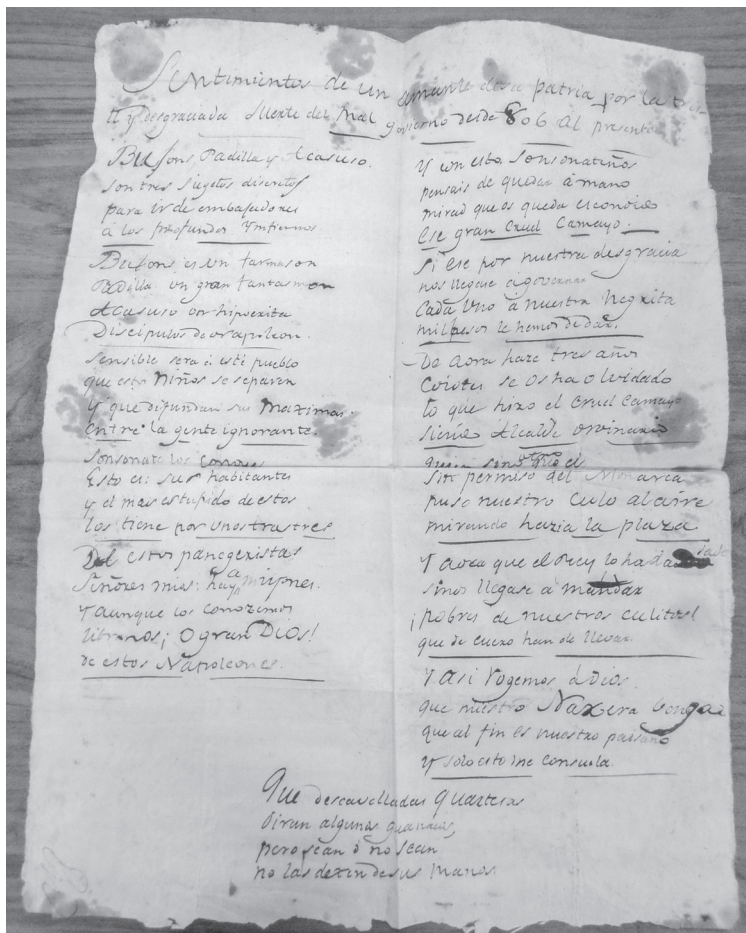 Sentimientos de un amante de su patria por la tris-
te y desgraciada suerte del mal govierno desde 806 al presente
Bufons, Padilla y Acasuso.
son tres sugetos discretos
para ir de embasadores
a los profundos Ynfiernos
Bufons es un farmason
Padilla un gran fantasmon
Acasuso un hipocrita
Discipulos de Napoleon.
sensible sera a este pueblo
que estos Niños se separen
y que difundan sus Maximas
entre la gente ignorante.
sonsonate los conoce
Esto es: sus habitantes
y el mas estupido de estos
los tiene por unos trastres
De estos panegexistas
Señores mios: hay a mi
Y aunque los conozemos
libranos ¡O gran Dios!
de estos Napoleones.
Y con esto Sonsonateños
pensais de quedar à mano
mirad que os queda escondido
Ese gran Cruel Camayo.
Si ese por nuestra desgracia
nos llegase a governar
Cada uno à nuestra Negrita
mil pesos le hemos de dar.
De aora haze tres años
se os ha olvidado
lo que hizo el Cruel Camayo
siendo Alcalde ordinario
Sin permiso del Monarca
puso nuestro Culo al aire
mirando hazia la plaza
Y aora que el Rey lo ha
sinos llegase à mandar
¡pobres de nuestros culitos!
que de cuero han de llevar.
Y asi rogemos à Dios
que nuestro Naxera benga
que al fin es nuestro paisano
Y solo esto me consuela.
Que descavelladas quartetas
diran algunos guanacos,
pero sean ò no sean
no las dexen de sus manos